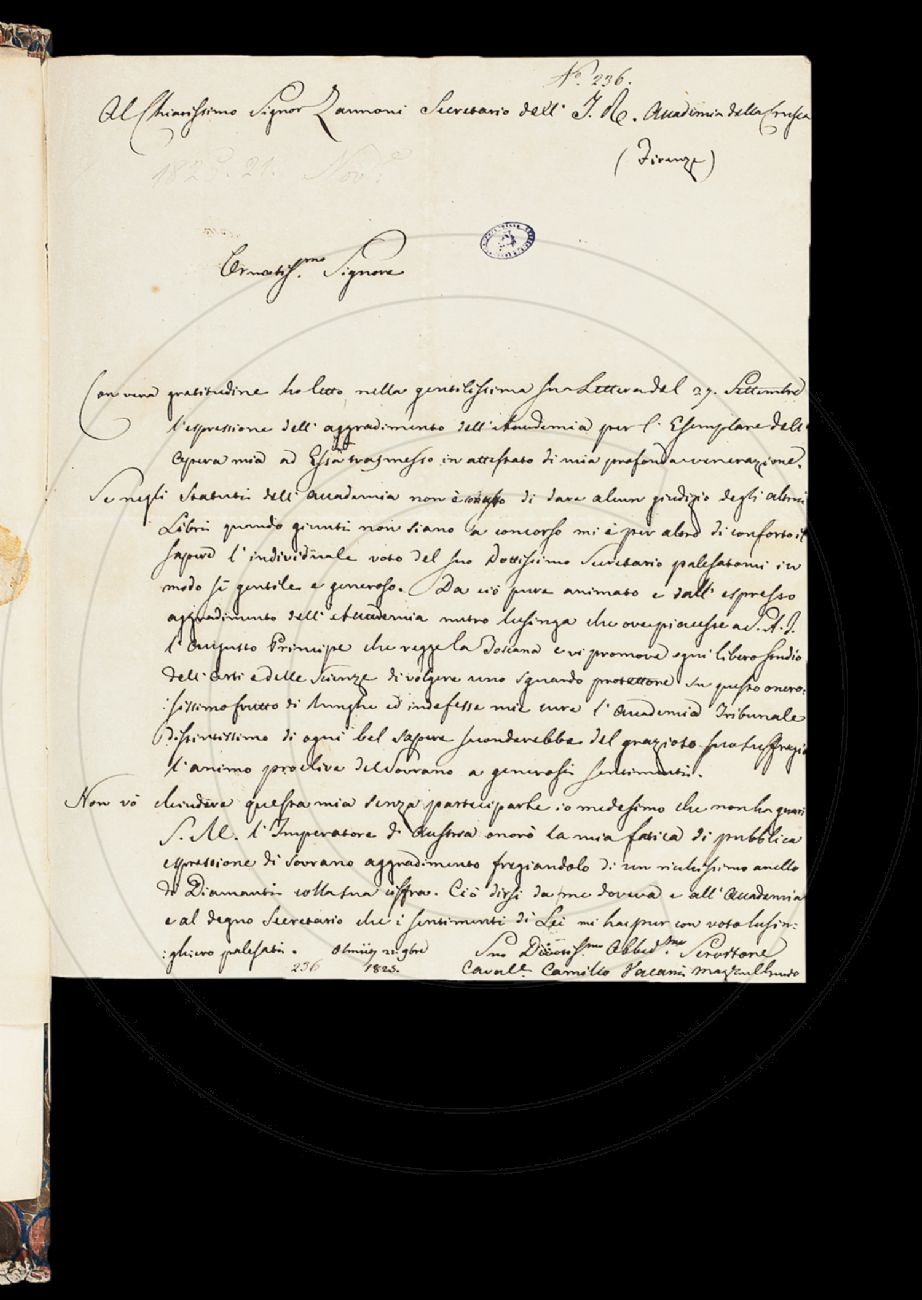 N.° 236.
Al Chiarissimo Signor Zannoni Secretario dell' I. R. Accademia della Crusca
(Firenze)
1823. 21. Nov.e
Ornatiss.mo Signore
Con vera gratitudine ho letto nella gentilissima sua Lettera del 27. Settembre
l'espressione dell' aggradimento dell' Accademia per l' Esemplare dell'
Opera mia ad Essa trasmesso in attestato di mia profonda venerazione.
Se negli Statuti dell' Accademia non è di dare alcun giudizio degli altrui
Libri quando giunti non siano a concorso mi è per altro di conforto il
sapere l' individuale voto del suo Dottissimo Secretario palesatomi in
modo sì gentile e generoso. Da ciò pure animato e dall' espresso
aggradimento dell' Accademia nutro lusinga che ove piacesse a S. A. I.
l' Augusto Principe che regge la Toscana e vi promove ogni libero studio
dell' Arti e delle Scienze di volgere uno sguardo protettore su questo onero:
:sissimo frutto di lunghe ed indefesse mie cure l' Accademia Tribunale
distintissimo di ogni bel sapere seconderebbe del grazioso suo suffragio
l' animo proclive del Sovrano a generosi sentimenti.
Non vò chiudere questa mia senza parteciparle io medesimo che non ha guari
S. M. l' Imperatore di Austria onorò la mia fatica di pubblica
espressione di Sovrano aggradimento fregiandolo di un ricchissimo anello
di Diamanti colla sua ciffra. Ciò dirsi da me doveva e all' Accademia
e al degno Secretario che i sentimenti di Lei mi ha pur con voto lusin:
:ghiero palesati. Olmütz 21 9bre Suo Divotiss.mo Obbed.mo Servitore
236 1823. Caval.e Camillo Vacani